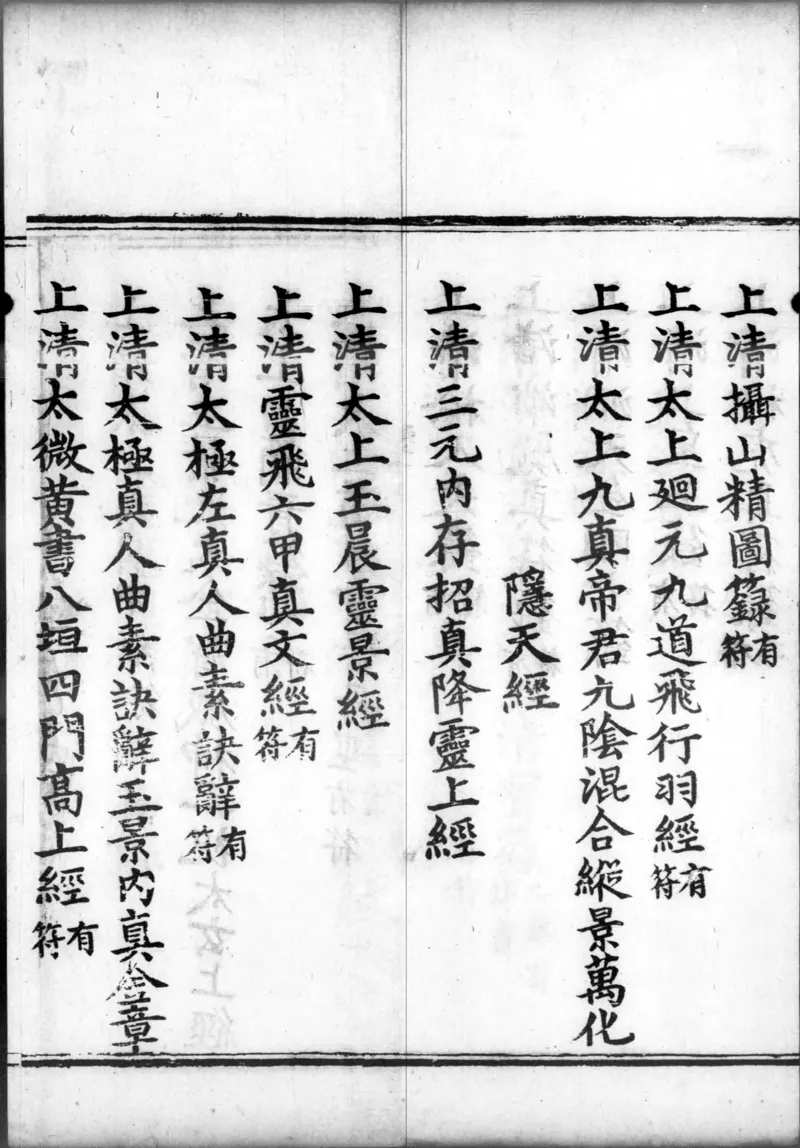 上清攝山精圖籙有符
上清太上廻元九道飛行羽經有符
上清太上九真帝君九陰混合縱景萬化
隱天經
上清三元內存招真降靈上經
上清太上玉晨靈景經
上清靈飛六甲真文經有符
上清太極左真人曲素訣辭有符
上清太極真人曲素訣辭玉景內真金章
上清太微黃書八垣四門高上經有符